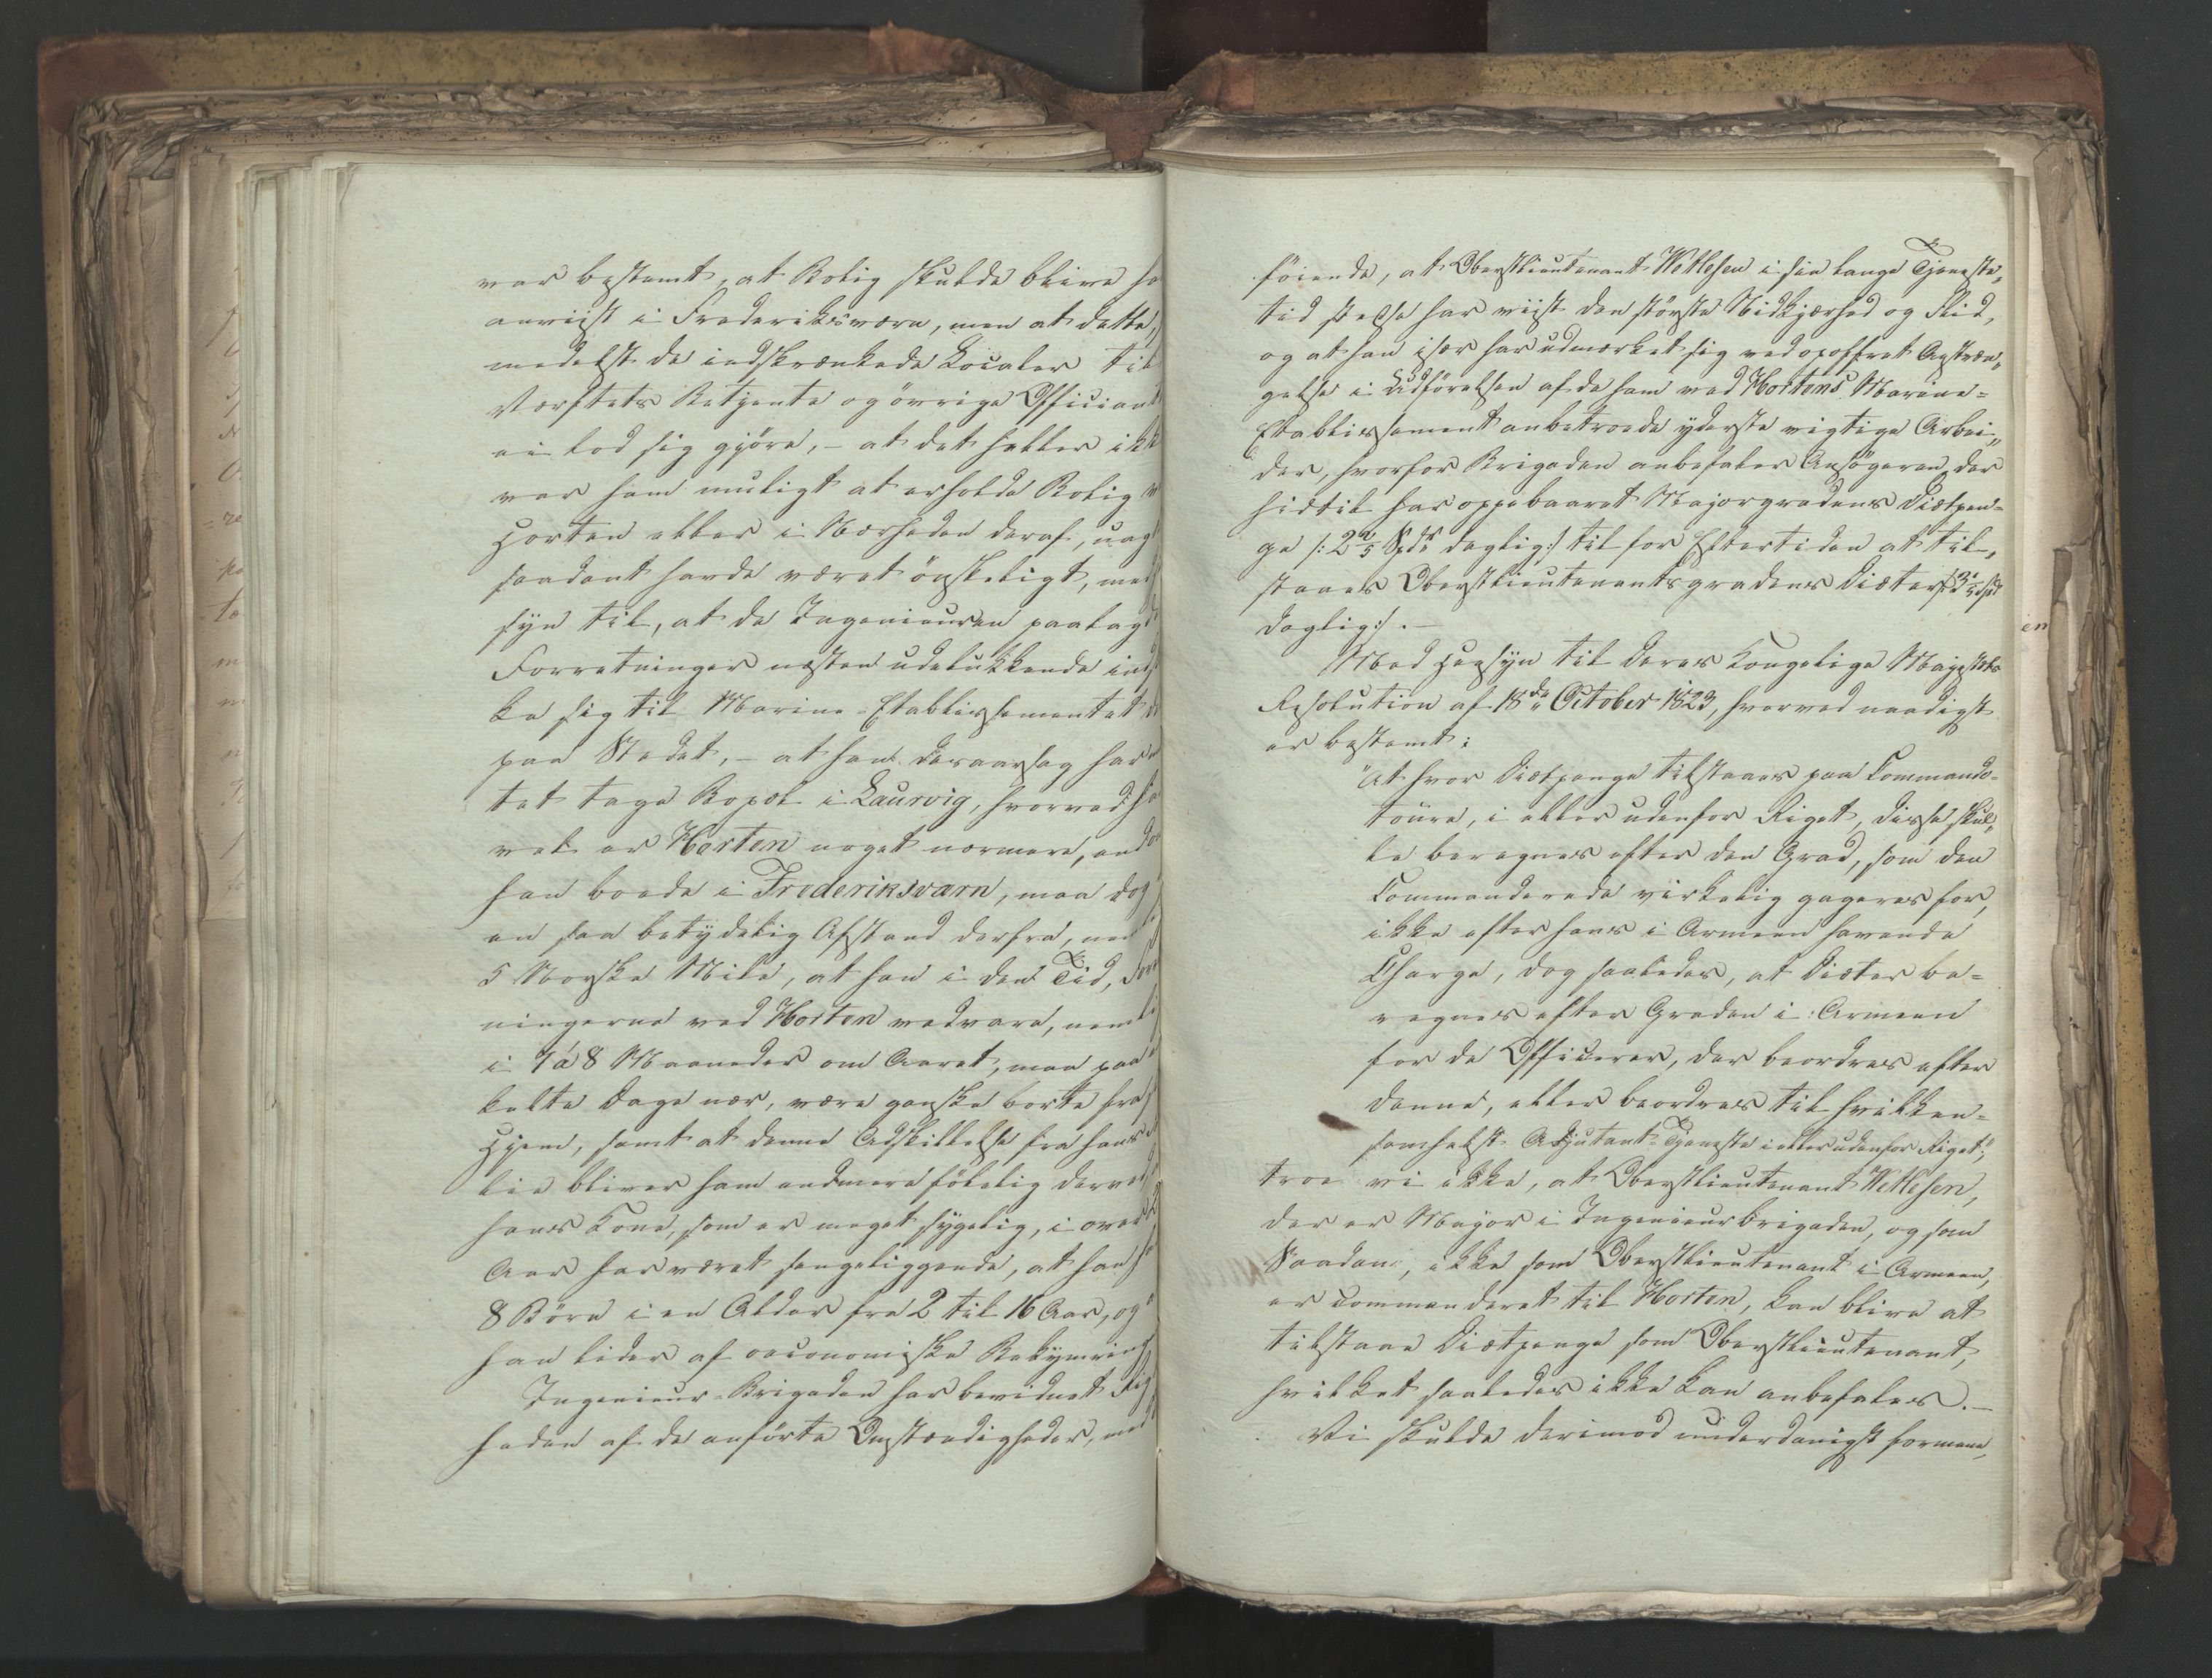 var bestemt, at Bolig skulde blive ha
anviist i Frederiksværn, men at dette,
medelst de indskrænkede Localer til
Værftets Betjente og øvrige Officiant
ei lod sig gjøre, – at det heller ikk
var ham muligt at erholde Bolig
Horten eller i Nærheden deraf, uag
saadant havde været ønskeligt, med
syn til, at de Ingenieuren paalag
Forretninger næsten udelukkende ind
ke sig til Marine-Etablissementet
paa Stedet, – at han deraarsag har
tet tage Bopæl i Laurvig, hvorved ha
vel er Horten noget nærmere, end da
han boede i Frederiksværn, men dog
en saa betydelig Afstand derfra, nem
5 Norske Mile, at han i den Tid, Forr
ningerne ved Horten vedvare, neml
i 7 à 8 Maaneder om Aaret, maa paa
kelte Dage nær, være ganske borte fra
Hjem, samt at denne Adskillelse fra hans
lie bliver ham endmere følelig derved
hans Kone, som er meget sygelig, i over 2
Aar har været sengeliggende, at han ha
8 Børn i en Alder fra 2 til 16 Aar, og
han lider af oeconomiske Bekymring
Ingenieur-Brigaden har bevidnet Rig
heden af de anførte Omstændigheder, med
føiende, at Oberstlieutenant Wetlesen i sin lange Tjeneste„
tid stedse har viist den største Nidkjærhed og Flid,
og at han især har udmærket sig ved opoffret Anstræn„
gelse i Udførelsen af de ham ved Hortens Marine=
Etablissement anbetroede yderste vigtige Arbei„
der, hvorfor Brigaden anbefaler Ansøgeren, der
hidtil har oppebaaret Majorgradens Diætpen=
ge /: 2 2/5 Spdr daglig :/ til for Eftertiden at til„
staaes Oberstlieutenantsgradens Diæter /: 3 1/5 Spd
daglig :/. –
Med Hensyn til Deres Kongelige Majestæts
Resolution af 18de October 1823, hvorved naadigst
er bestemt:
"At hvor Diætpenge tilstaaes paa Commando=
toure, i eller udenfor Riget, disse skul„
le beregnes efter den Grad, som den
Commanderede virkelig gageres for,
ikke efter hans i Armeen havende
Charge, dog saaledes, at Diæter be=
regnes efter Graden i Armeen
for de Officerer, der beordres efter
denne, eller beordres til hvilken=
somhelst Adjutant-Tjeneste i eller udenfor Riget",
troe vi ikke, at Oberstlieutenant Wetlesen,
der er Major i Ingenieurbrigaden, og som
Saadan, ikke som Oberstlieutenant i Armeen,
er commanderet til Horten, kan blive at
tilstaae Diætpenge som Oberstlieutenant,
hvilket saaledes ikke kan anbefales. –
Vi skulde derimod underdanigst formene,